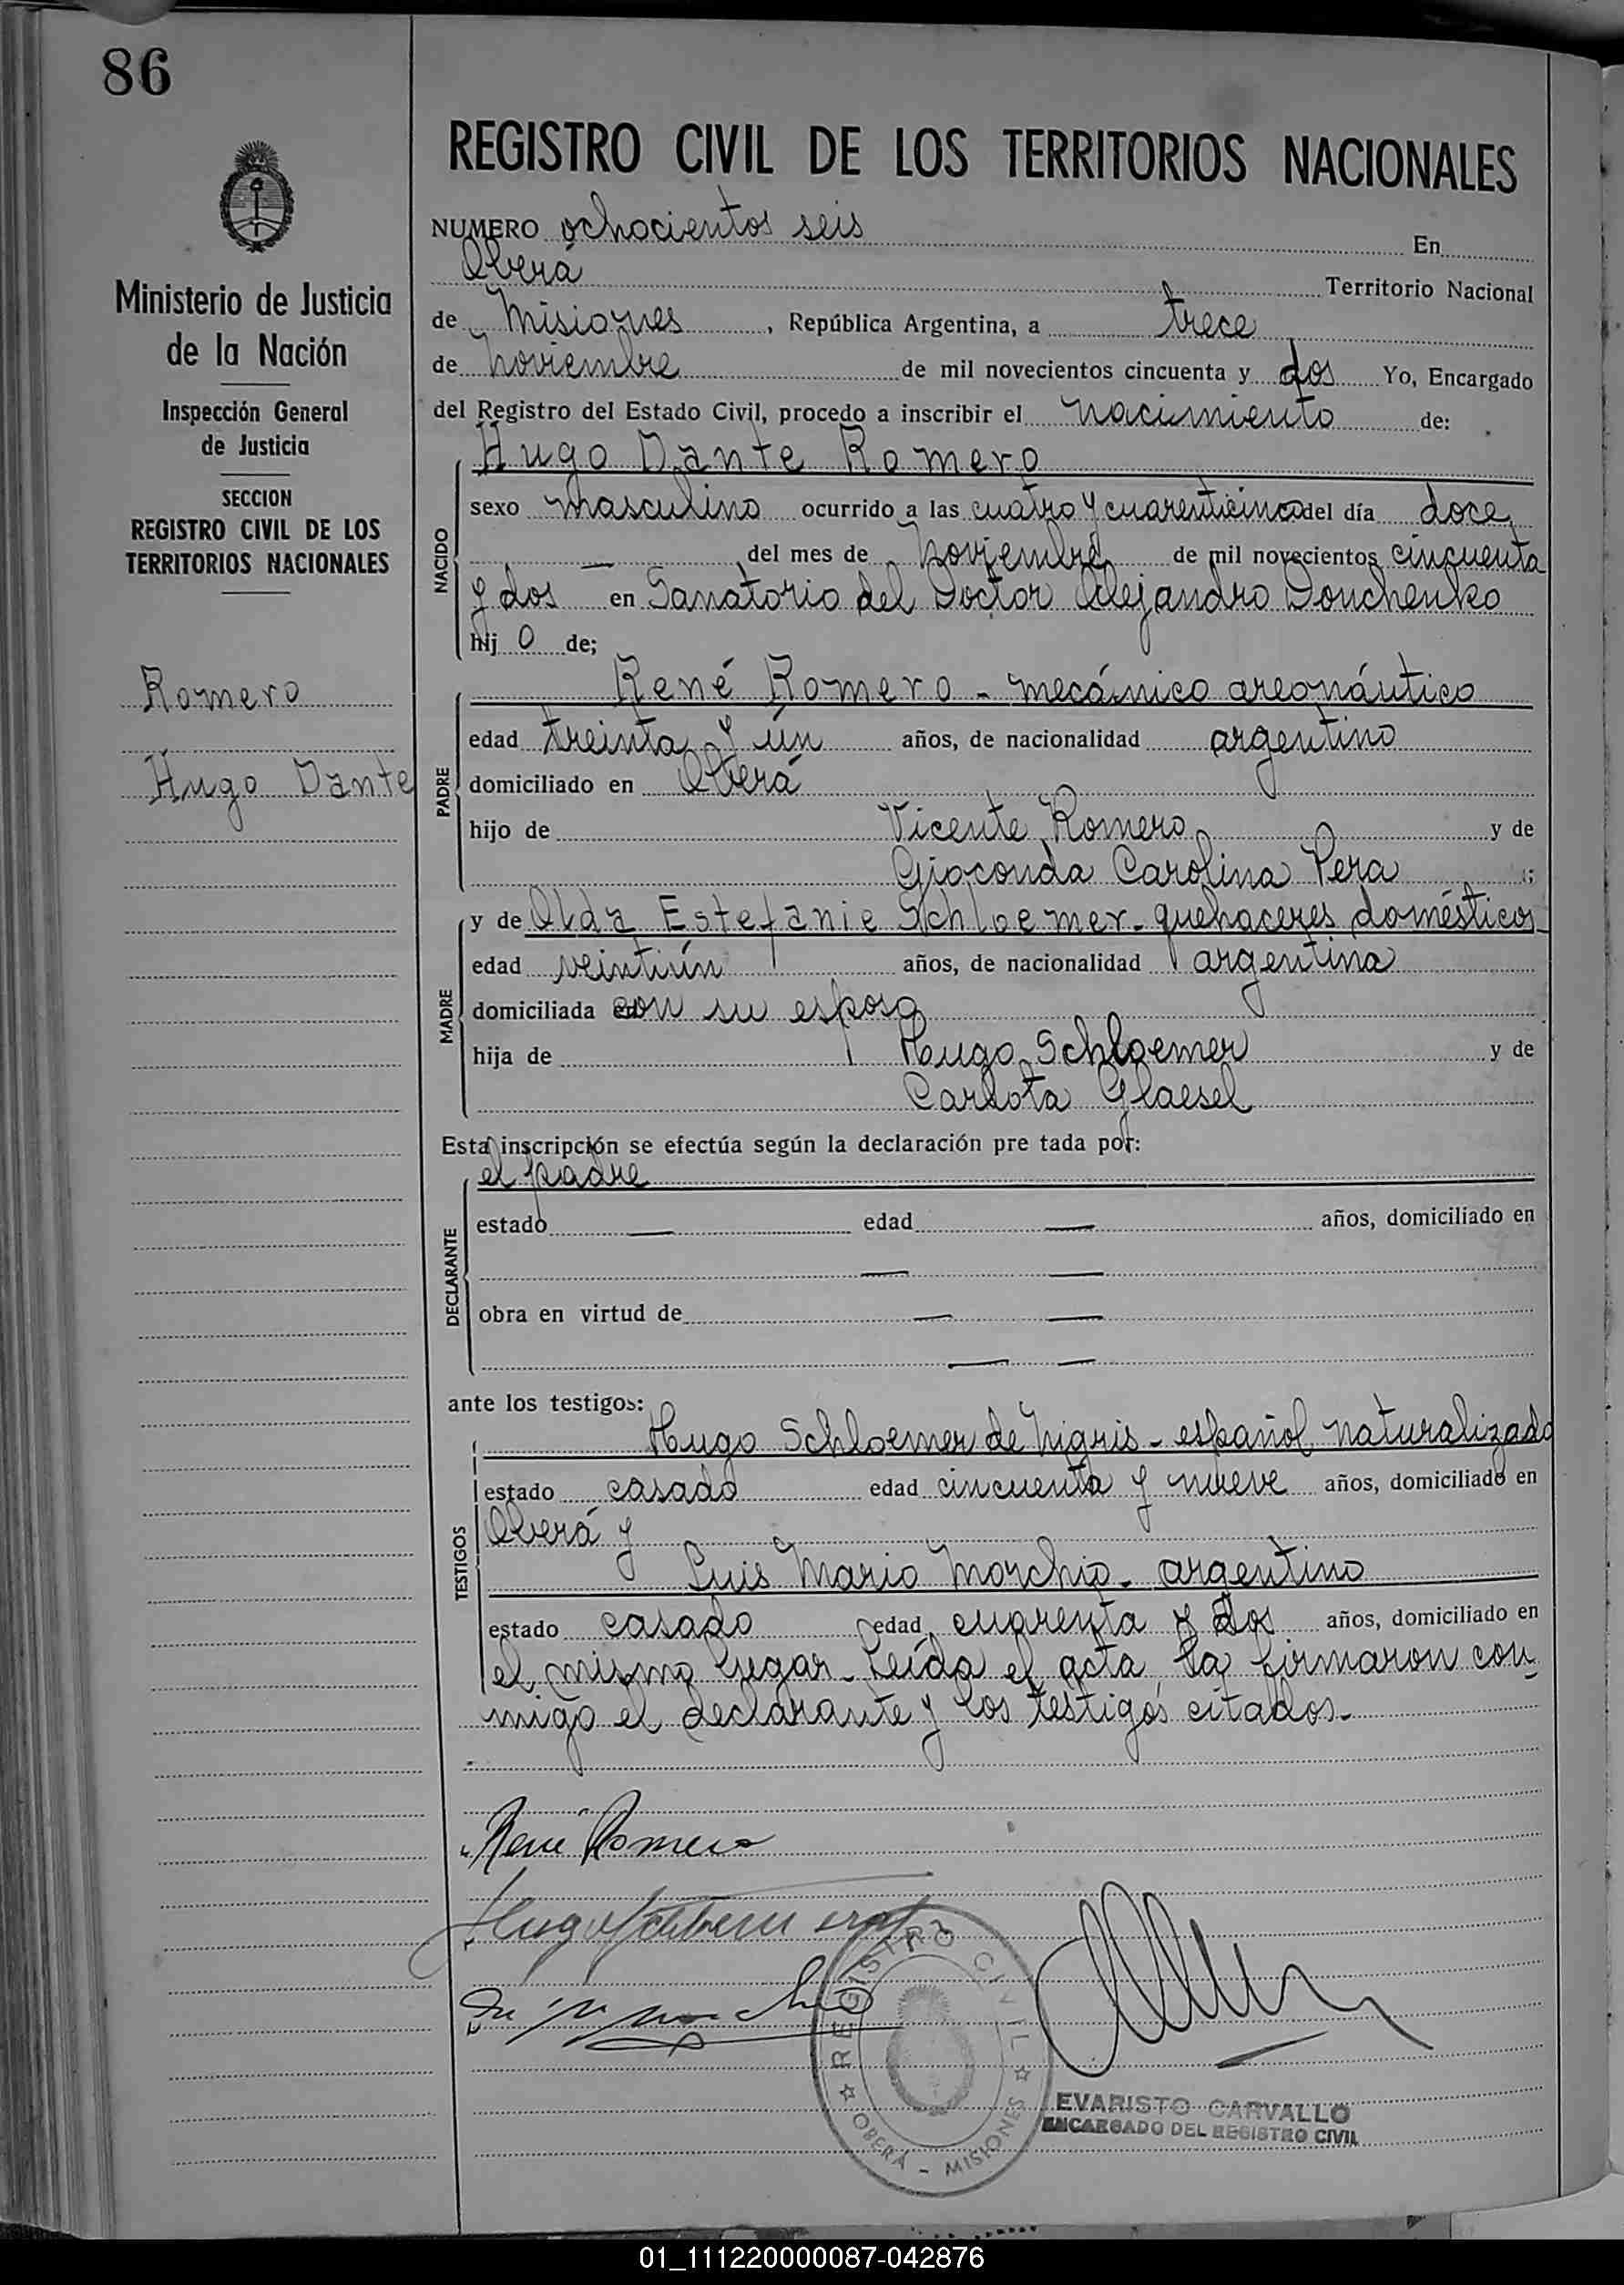 86
Ministerio de Justicia
de la Nación
Inspección General
de Justicia
SECCION
REGISTRO CIVIL DE LOS
TERRITORIOS NACIONALES
Romero
Hugo Dante
REGISTRO CIVIL DE LOS TERRITORIOS NACIONALES
NUMERO ochocientos seis En
Oberá Territorio Nacional
de Misiones, República Argentina, a trece
de noviembre de mil novecientos cincuenta y dos Yo, Encargado
del Registro del Estado Civil, procedo a inscribir el nacimiento de:
Hugo Dante Romero
NACIDO
sexo masculino ocurrido a las cuatro y cuarenticinco del día doce
— del mes de noviembre de mil novecientos cincuenta
y dos en Sanatorio del Doctor Alejandro Donchenko
hij o de;
René Romero - mecánico areonáutico
PADRE
edad treinta y ún años, de nacionalidad argentino
domiciliado en Oberá
hijo de Vicente Romero y de
Gioconda Carolina Vera ;
y de Olda Estefanie Schloemer - quehaceres domésticos
MADRE
edad veintiún años, de nacionalidad argentina
domiciliada con su esposo
hija de Hugo Schloemer y de
Carlota Glaesel
Esta inscripción se efectúa según la declaración pre tada por:
el padre
DECLARANTE
estado — edad — años, domiciliado en
— —
obra en virtud de — —
— —
ante los testigos:
Hugo Schloemer de Nigris - español naturalizado
TESTIGOS
estado casado edad cincuenta y nueve años, domiciliado en
Oberá y
Luis Mario Morchio - argentino
estado casado edad cuarenta y dos años, domiciliado en
el mismo lugar - Leída el acta la firmaron con
migo el declarante y los testigos citados.-
René Romero
REGISTRO CIVIL
OBERÁ - MISIONES
EVARISTO CARVALLO
ENCARGADO DEL REGISTRO CIVIL
01_111220000087-042876